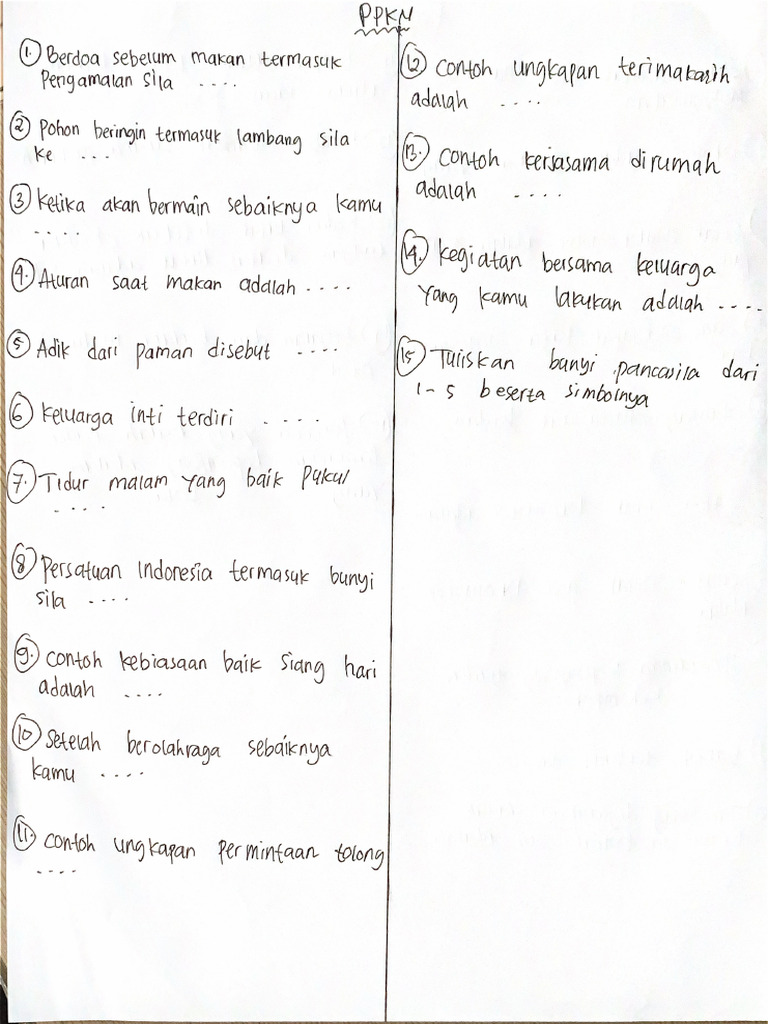 PPKN
1. Berdoa sebelum makan termasuk
Pengamalan sila ....
2 Pohon beringin termasuk lambang sila
ke ...
3 Ketika akan bermain sebaiknya kamu
.....
4. Aturan saat makan adalah ....
5 Adik dari paman disebut ....
6 Keluarga inti terdiri .....
7. Tidur malam yang baik pukul
.....
8 Persatuan Indonesia termasuk bunyi
sila ....
9. Contoh kebiasaan baik siang hari
adalah ....
10 Setelah berolahraga sebaiknya
kamu ....
11. Contoh ungkapan permintaan tolong
....
12 Contoh ungkapan terimakasih
adalah ....
13. Contoh kerjasama dirumah
adalah ....
14. Kegiatan bersama keluarga
yang kamu lakukan adalah ....
15 Tuliskan bunyi pancasila dari
1-5 beserta simbolnya